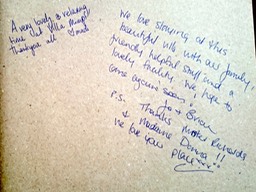 A very lovely & relaxing
time at Villa
Thank you all
We love staying at this
beautiful villa with all family,
friendly helpful staff and a
lovely facility. We hope to
come again soon!
Jo & Brian
P.S. Thanks Mister Richards
& Madame Donna !!
We love your
place